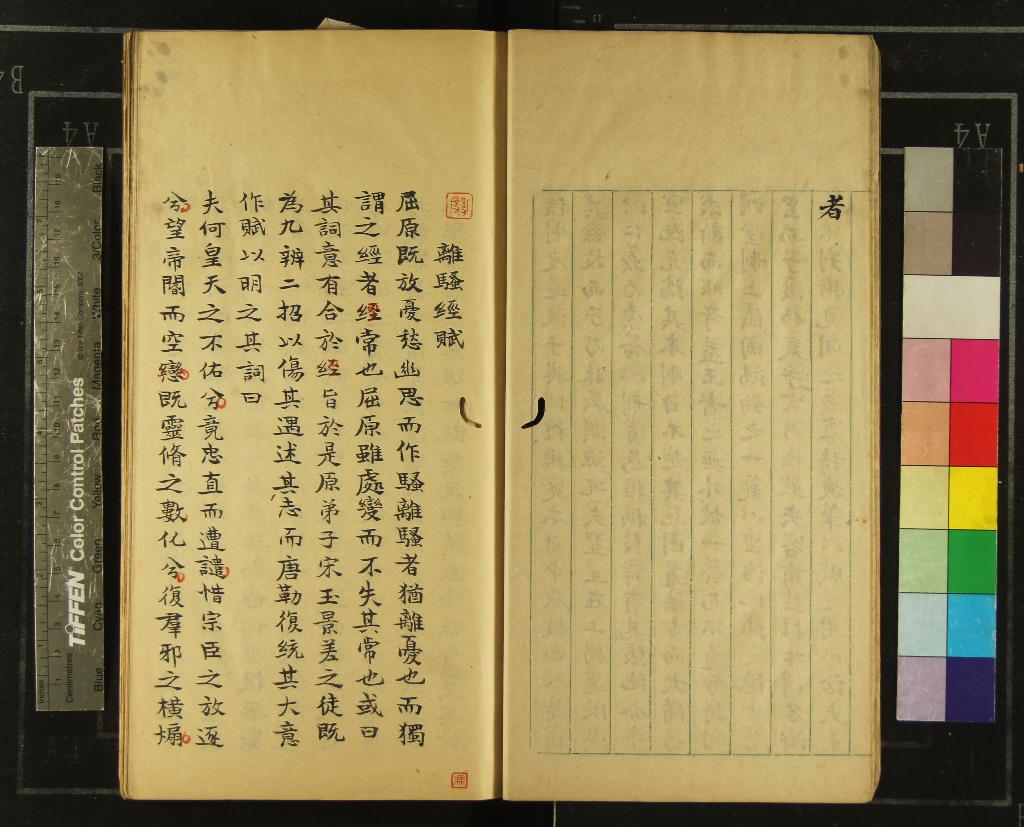 者
離騷經賦
屈原既放憂愁幽思而作騷離騷者猶離憂也而獨
謂之經者經常也屈原雖處變而不失其常也或曰
其詞意有合於經旨於是原弟子宋玉景差之徒既
為九辨二招以傷其遇述其志而唐勒復統其大意
作賦以明之其詞曰
夫何皇天之不佑兮竟忠直而遭譴惜宗臣之放逐
兮望帝閽而空戀既靈脩之數化兮復羣邪之橫煽
TIFFEN Color Control Patches
© The Tiffen Company, 2007
Inches
Centimetres
Blue
Cyan
Green
Yellow
Red
Magenta
White
3/Color
Black
A4
A4